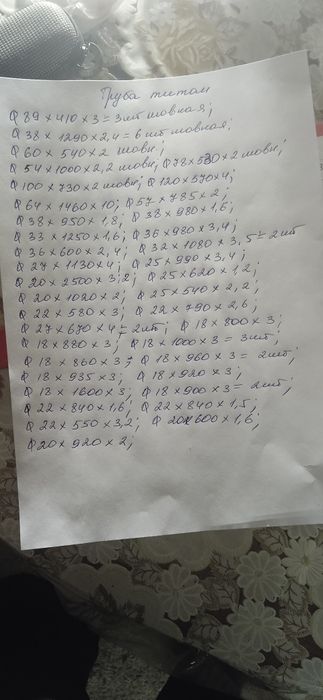 Труба титан
Q 89 x 410 x 3 = 3 шт шовная;
Q 38 x 1290 x 2,4 = 6 шт шовная;
Q 60 x 540 x 2 шовн;
Q 54 x 1000 x 2,2 шовн; Q 78 x 530 x 2 шовн;
Q 100 x 730 x 2 шовн; Q 120 x 570 x 4;
Q 64 x 1460 x 10; Q 57 x 785 x 2;
Q 38 x 950 x 1,8; Q 38 x 980 x 1,6;
Q 33 x 1250 x 1,6; Q 36 x 980 x 3,4;
Q 36 x 600 x 2,4; Q 32 x 1080 x 3,5 = 2 шт
Q 27 x 1130 x 4; Q 25 x 990 x 3,4;
Q 20 x 2500 x 3,2; Q 25 x 620 x 1,2;
Q 20 x 1020 x 2; Q 25 x 540 x 2,2;
Q 22 x 580 x 3; Q 22 x 790 x 2,6;
Q 27 x 670 x 4 = 2 шт; Q 18 x 800 x 3;
Q 18 x 880 x 3; Q 18 x 1000 x 3 = 3 шт;
Q 18 x 860 x 3; Q 18 x 960 x 3 = 2 шт;
Q 18 x 935 x 3; Q 18 x 920 x 3;
Q 18 x 1600 x 3; Q 18 x 900 x 3 = 2 шт;
Q 22 x 840 x 1,6; Q 22 x 840 x 1,5;
Q 22 x 550 x 3,2; Q 20 x 600 x 1,6;
Q 20 x 920 x 2;